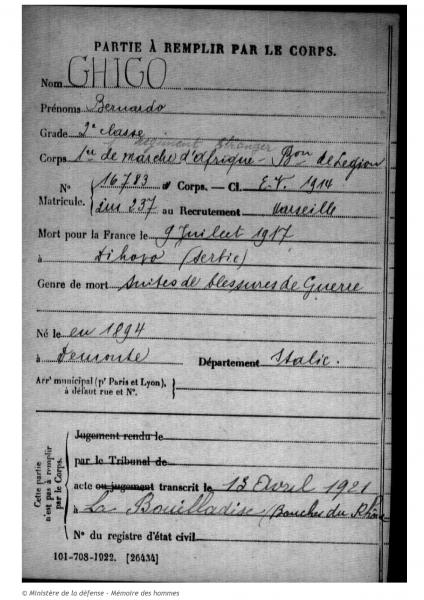 PARTIE À REMPLIR PAR LE CORPS.
Nom GHIGO
Prénoms Bernardo
Grade 2e classe
Régiment étranger
Corps 1er de marche d'afrique - Bon de Légion
N° 16783 au Corps. - Cl. E.V. 1914
Matricule. 237 au Recrutement Marseille
Mort pour la France le 9 Juillet 1917
à Dihovo (Serbie)
Genre de mort Suites de blessures de Guerre
Né le en 1894
à Demonte Département Italie.
Arrt municipal (pr Paris et Lyon),
à défaut rue et N°.
Cette partie
n'est pas à remplir
par le Corps.
Jugement rendu le
par le Tribunal de
acte ou jugement transcrit le 13 Avril 1921
à La Bouilladise (Bouches du Rhône
N° du registre d'état civil
101-708-1922. [26434]
© Ministère de la défense - Mémoire des hommes